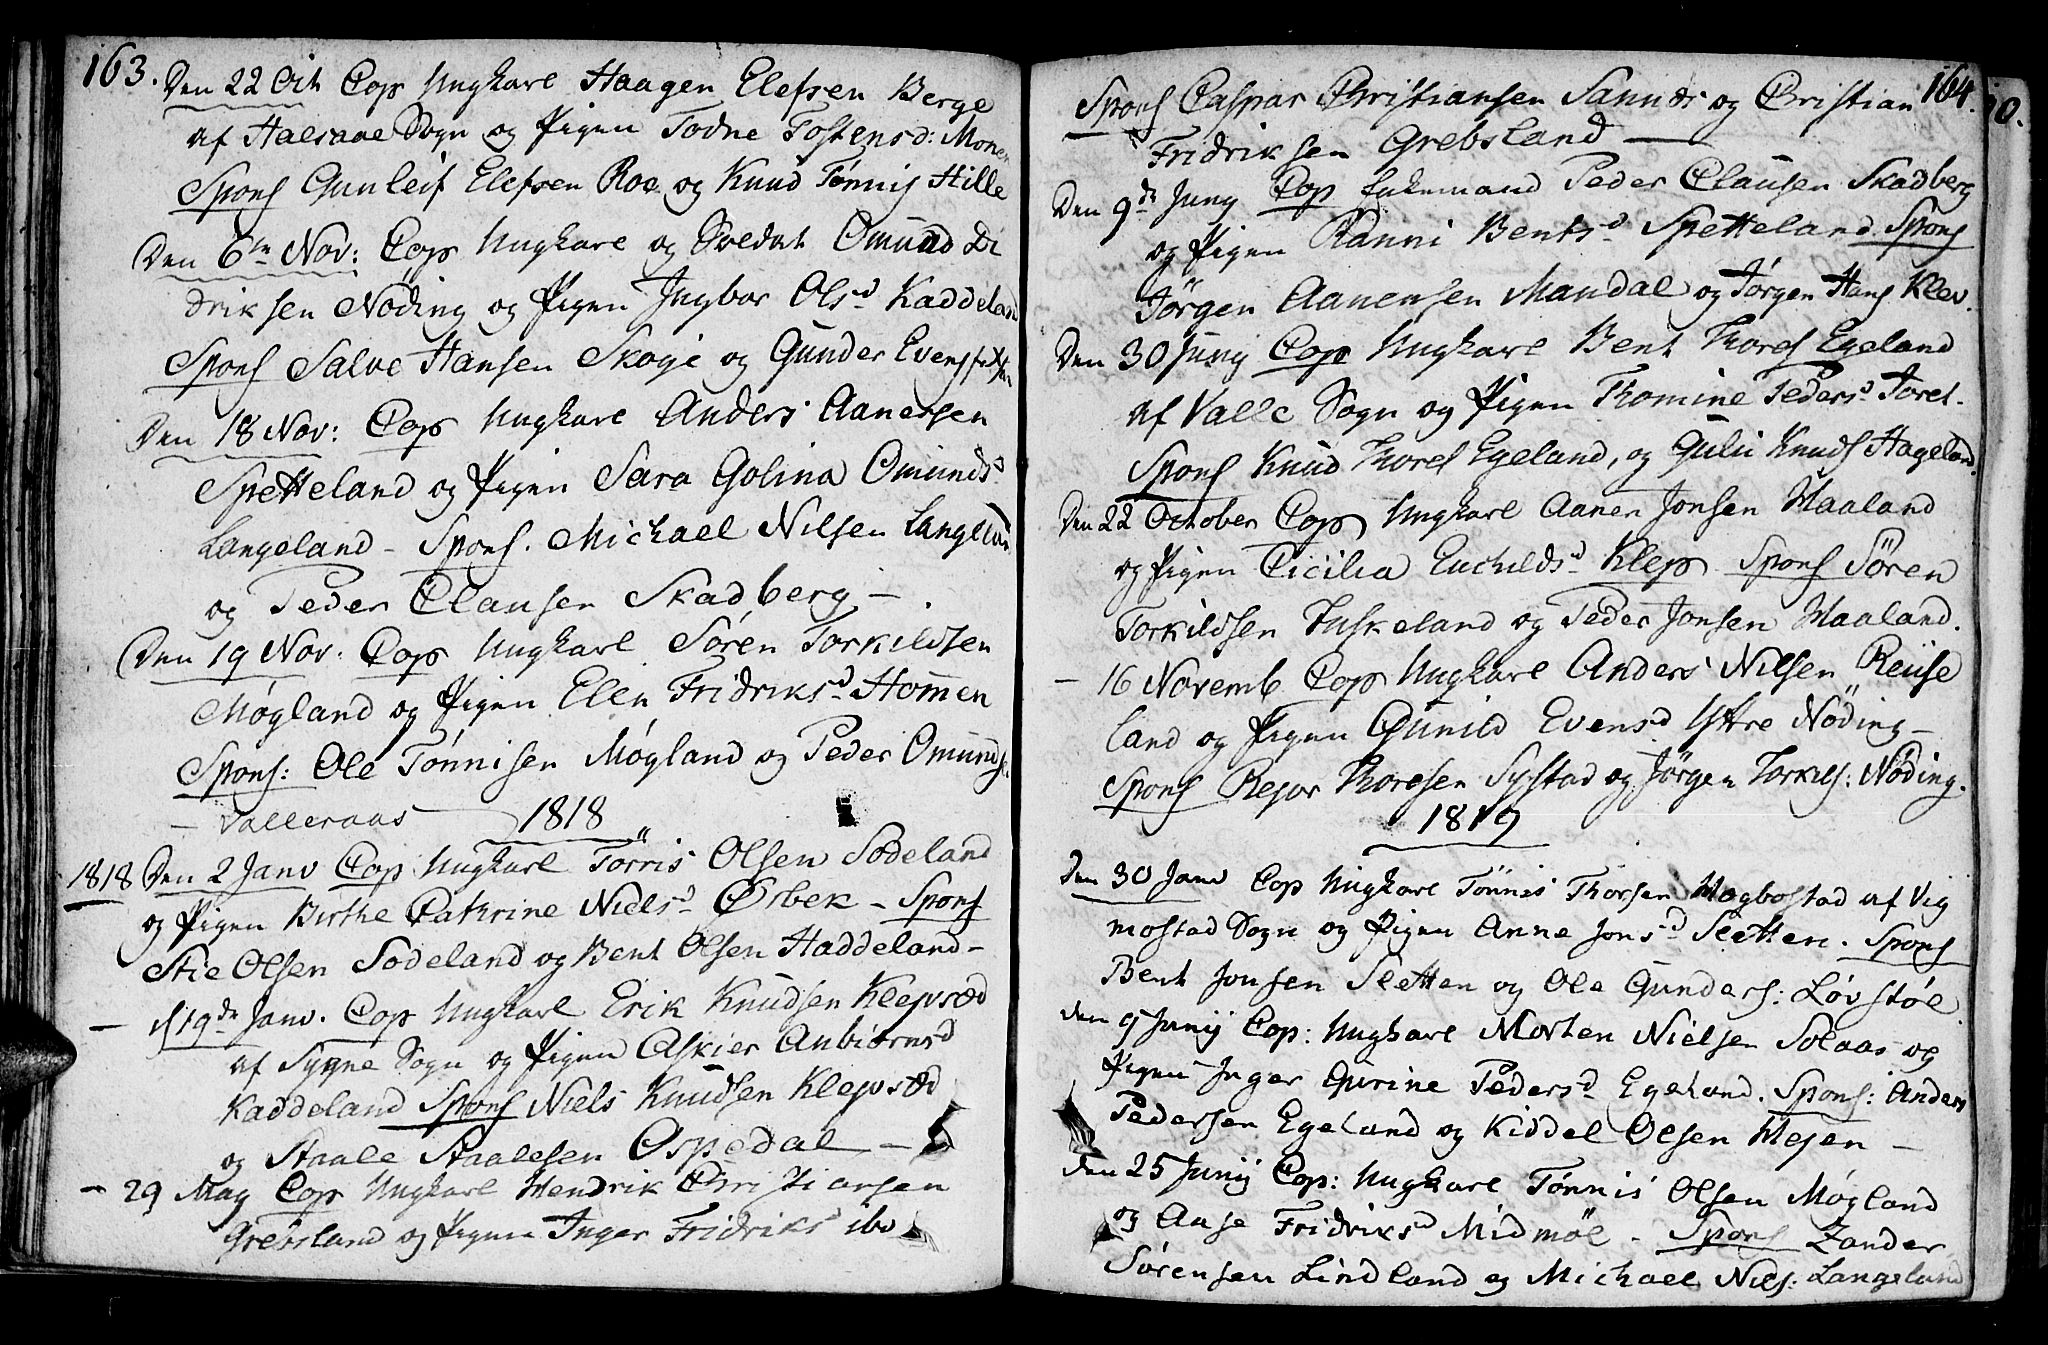 163.
Den 22 Oct Cop Ungkarl Haagen Elefsen Berge
af Halsaae Sogn og Pigen Todne Tostensd: Monen
Spons Gunleif Elefsen Roe og Knud Tønnis Hille
Den 6te Nov: Cop Ungkarl og Soldat Omund Di
driksen Nøding og Pigen Ingbor Olsd Kaddeland
Spons Salve Hansen Skoge og Gunder Evens
Den 18 Nov: Cop Ungkarl Anders Aanensen
Spetteland og Pigen Sara Golina Omundsd
Langeland - Spons. Michael Nilsen Langeland
og Peder Clausen Skadberg -.
Den 19 Nov. Cop Ungkarl Søren Torkildsen
Møgland og Pigen Elen Fridriksd Hommen
Spons: Ole Tønnisen Møgland og Peder Omunds.
- Valleraas 1818
1818 Den 2 Janv Cop Ungkarl Tørris Olsen Sodeland
og Pigen Birthe Cathrine Nielsd Øsbek - Spons
Stie Olsen Sodeland og Bent Olsen Haddeland -
- d 19de Janv. Cop Ungkarl Erik Knudsen Klepsæd
af Sygne Sogn og Pigen Askier Anbiørnsd
Kaddeland Spons Niels Knudsen Klepsæd
og Staale Staalesen Ospedal -
- 29 May Cop Ungkarl Hendrik Christiansen
Grebsland og Pigen Inger Fridriksd ibd
164.
Spons Caspar Christiansen Sannes og Christian
Fridriksen Grebsland -
Den 9de Juny Cop Enkemand Peder Clausen Skadberg
og Pigen Ranni Bentsd Spetteland Spons
Jörgen Aanensen Mandal og Jörgen Hans Klev.
Den 30 Junij Cop Ungkarl Bent Thores Egeland
af Valle Sogn og Pigen Thomine Pedersd Toret.
Spons Knud Thores Egeland, og Guliv Knuds Hageland.
Den 22 October Cop Ungkarl Aanen Jonsen Haaland
og Pigen Cicilia Euchildsd Klep Spons Sören
Torkildsen Tuskeland og Peder Jonsen Haaland.
- 16 Novemb Cop Ungkarl Anders Nilsen Reuse
land og Pigen Gunild Evensd Ystre Nöding -
Spons Rejor Thoresen Systad og Jørgen Torkils: Nøding.
1819
Den 30 Janv Cop Ungkarl Tönnis Thorsen Hogbostad af Vig
mostad Sogn og Pigen Anne Jonsd Sletten. Spons
Bent Jonsen Sletten og Ole Gunders: Løvstøl
den 9 Junij Cop: Ungkarl Morten Nielsen Solaas og
Pigen Inger Gurine Pedersd Egeland. Spons: Anders
Pedersen Egeland og Kiddel Olsen Hejen -
den 25 Junij Cop: Ungkarl Tønnis Olsen Møgland
og Anse Fridriksd Midmöl - Spons Zander
Sørensen Lindland og Michael Nils: Langeland